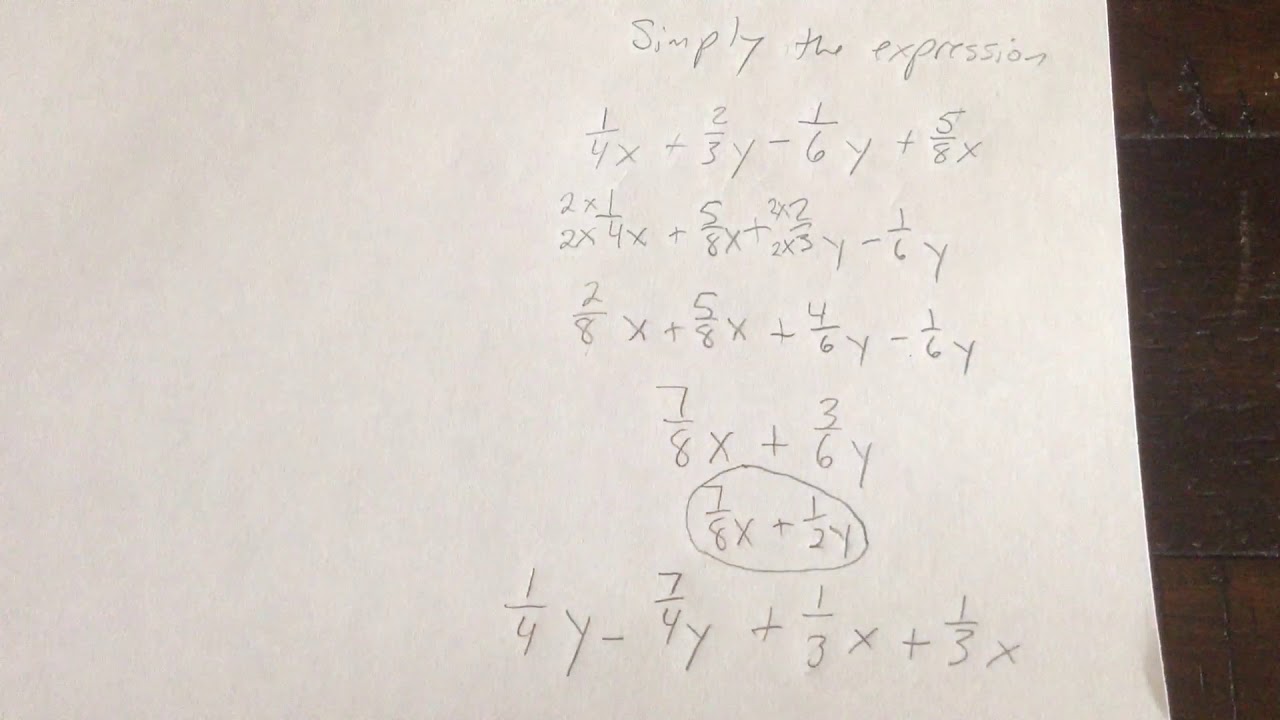 Simply the expression
1/4x + 2/3y - 1/6y + 5/8x
2x1/2x4x + 5/8x + 2x2/2x3y - 1/6y
2/8x + 5/8x + 4/6y - 1/6y
7/8x + 3/6y
7/8x + 1/2y
1/4y - 7/4y + 1/3x + 1/3x